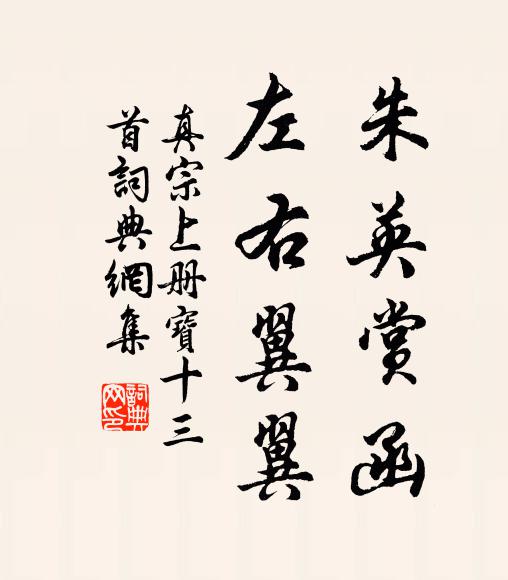 朱英赏函
左右翼翼
真宗上册寶十三
首詞典網集
詞典
网印